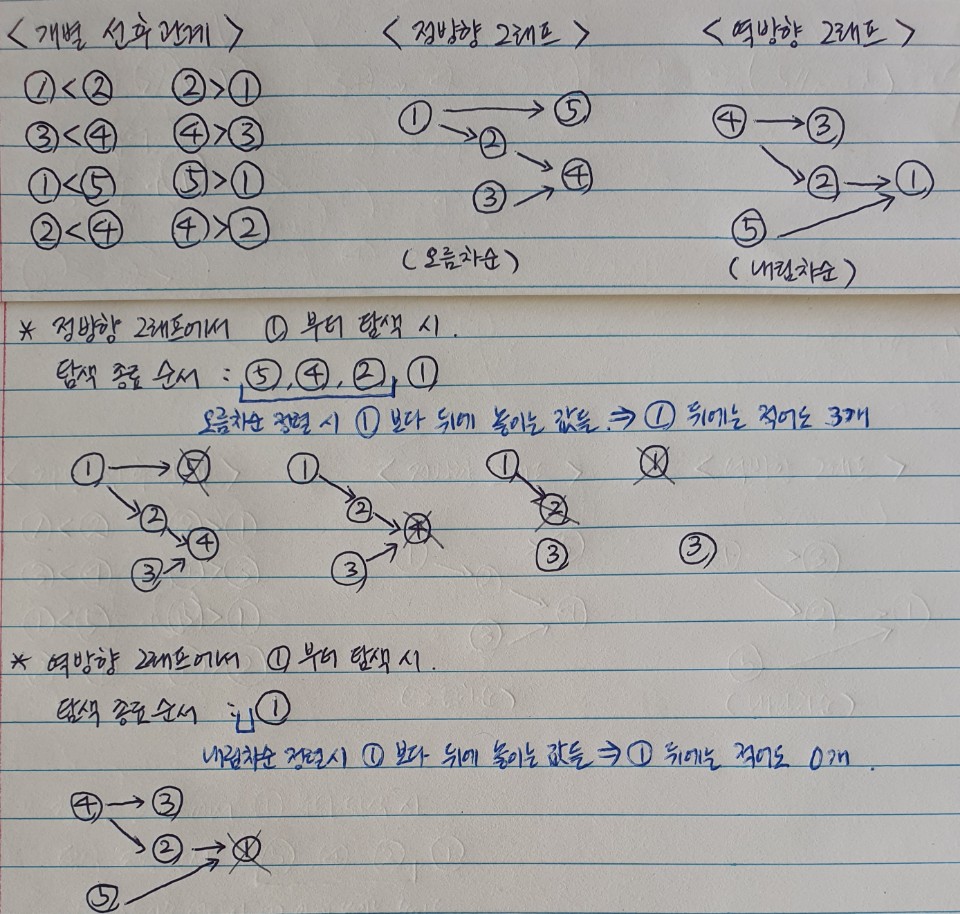 < 개별 선후관계 >
①<② ②>①
③<④ ④>③
①<⑤ ⑤>①
②<④ ④>②
< 정방향 그래프 >
① ⑤
②
④
③
(오름차순)
< 역방향 그래프 >
④ ③
② ①
⑤
(내림차순)
* 정방향 그래프에서 ① 부터 탐색 시.
탐색 종료 순서 : ⑤, ④, ②, ①
오름차순 정렬 시 ① 보다 뒤에 놓이는 값들 ⇒ ① 뒤에는 적어도 3개
① ⑤ ① ① ①
② ② ②
④ ④
③ ③ ③ ③
* 역방향 그래프에서 ① 부터 탐색 시.
탐색 종료 순서 : ①
내림차순 정렬시 ① 보다 뒤에 놓이는 값들 ⇒ ① 뒤에는 적어도 0개.
④ ③
② ①
⑤